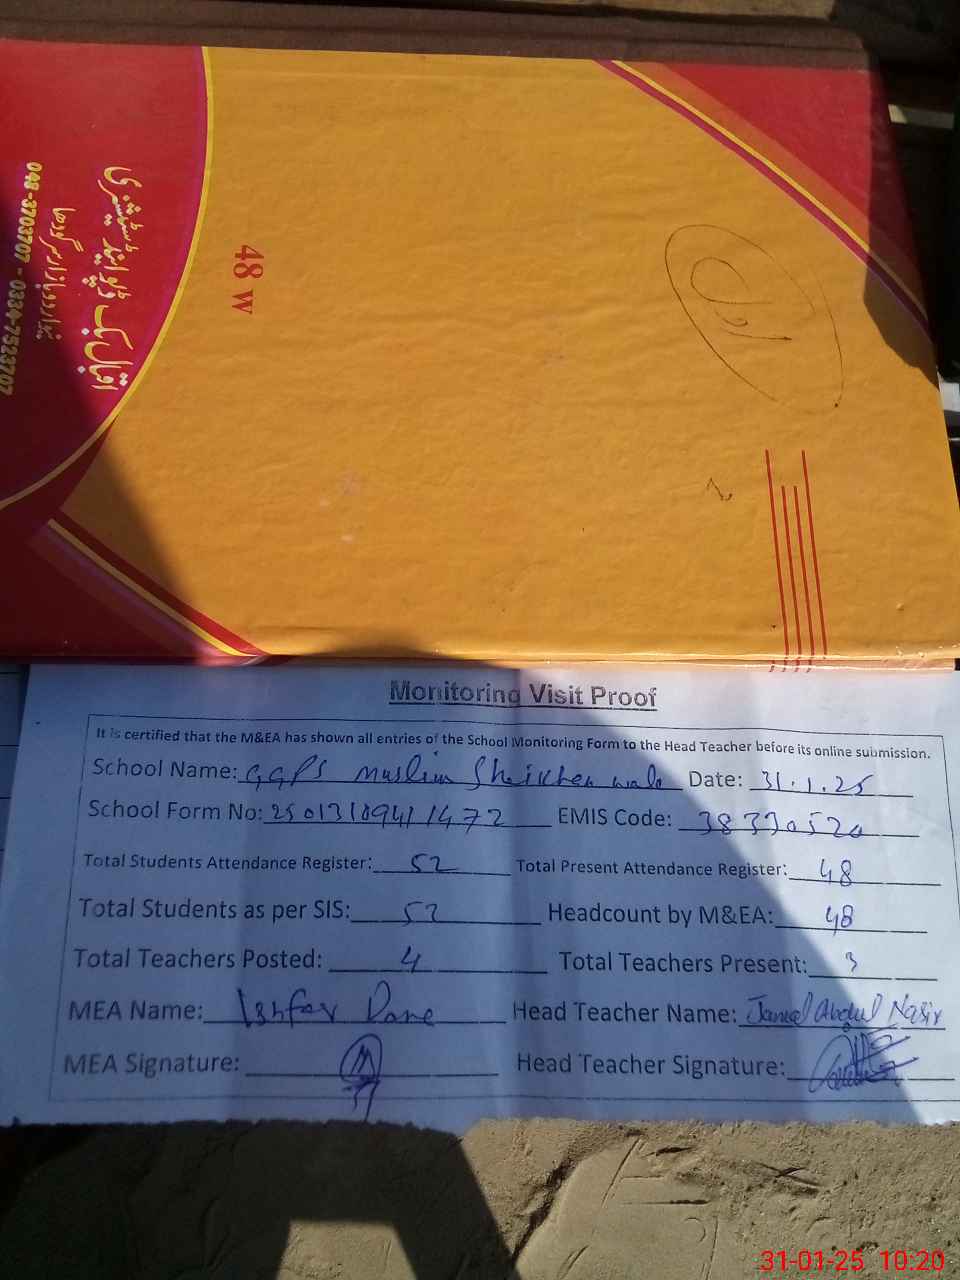 اقبال بک ڈپو اینڈ سٹیشنری
اردو بازار سرگودھا
048-3703707 - 0334-7523707
48 W
اول
Monitoring Visit Proof
It is certified that the M&EA has shown all entries of the School Monitoring Form to the Head Teacher before its online submission.
School Name: GGPS Muslim Sheikhen wala Date: 31.1.25
School Form No: EMIS Code: 38330520
Total Students Attendance Register: 52 Total Present Attendance Register: 48
Total Students as per SIS: 52 Headcount by M&EA: 48
Total Teachers Posted: 4 Total Teachers Present: 3
MEA Name: Head Teacher Name: Jamal Abdul Nasir
MEA Signature: Head Teacher Signature:
31-01-25 10:20